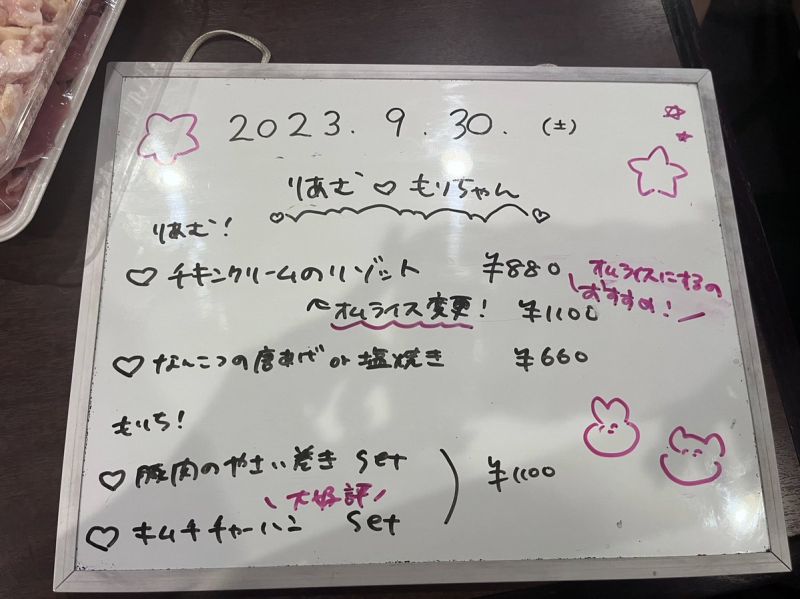 2023. 9. 30. (土)
りあむ♡もりちゃん
りあむ!
♡チキンクリームのリゾット ¥880
オムライス変更! ¥1100
オムライスにするの
おすすめ!
♡なんこつの唐あげor塩焼き ¥660
もりち!
♡豚肉のやさい巻き set
¥1100
\大好評/
♡キムチチャーハン set